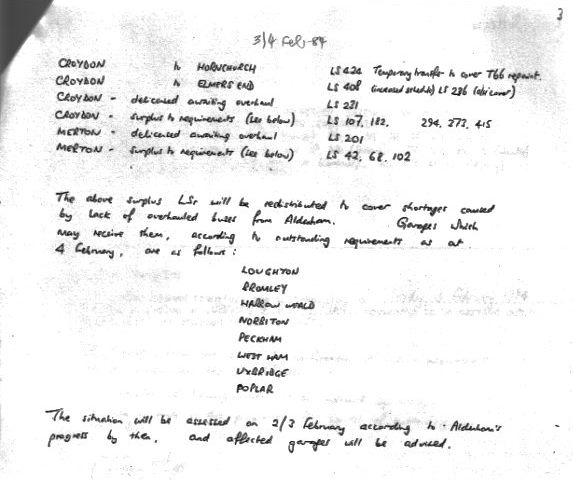 3
3/4 Feb. 84
CROYDON to HORNCHURCH LS 424 Temporary transfer to cover T66 repaint.
CROYDON to ELMERS END LS 408 (increased schedule) LS 236
CROYDON - delicensed awaiting overhaul LS 231
CROYDON - surplus to requirements (see below) LS 107, 182, 294, 273, 415
MERTON - delicensed awaiting overhaul LS 201
MERTON - surplus to requirements (see below) LS 42, 68, 102
The above surplus LSs will be redistributed to cover shortages caused
by lack of overhauled buses from Aldenham. Garages which
may receive them, according to outstanding requirements as at
4 February, are as follows:
LOUGHTON
BROMLEY
HARROW WEALD
NORBITON
PECKHAM
WEST HAM
UXBRIDGE
POPLAR
The situation will be assessed on 2/3 February according to Aldenham's
progress by then, and affected garages will be advised.